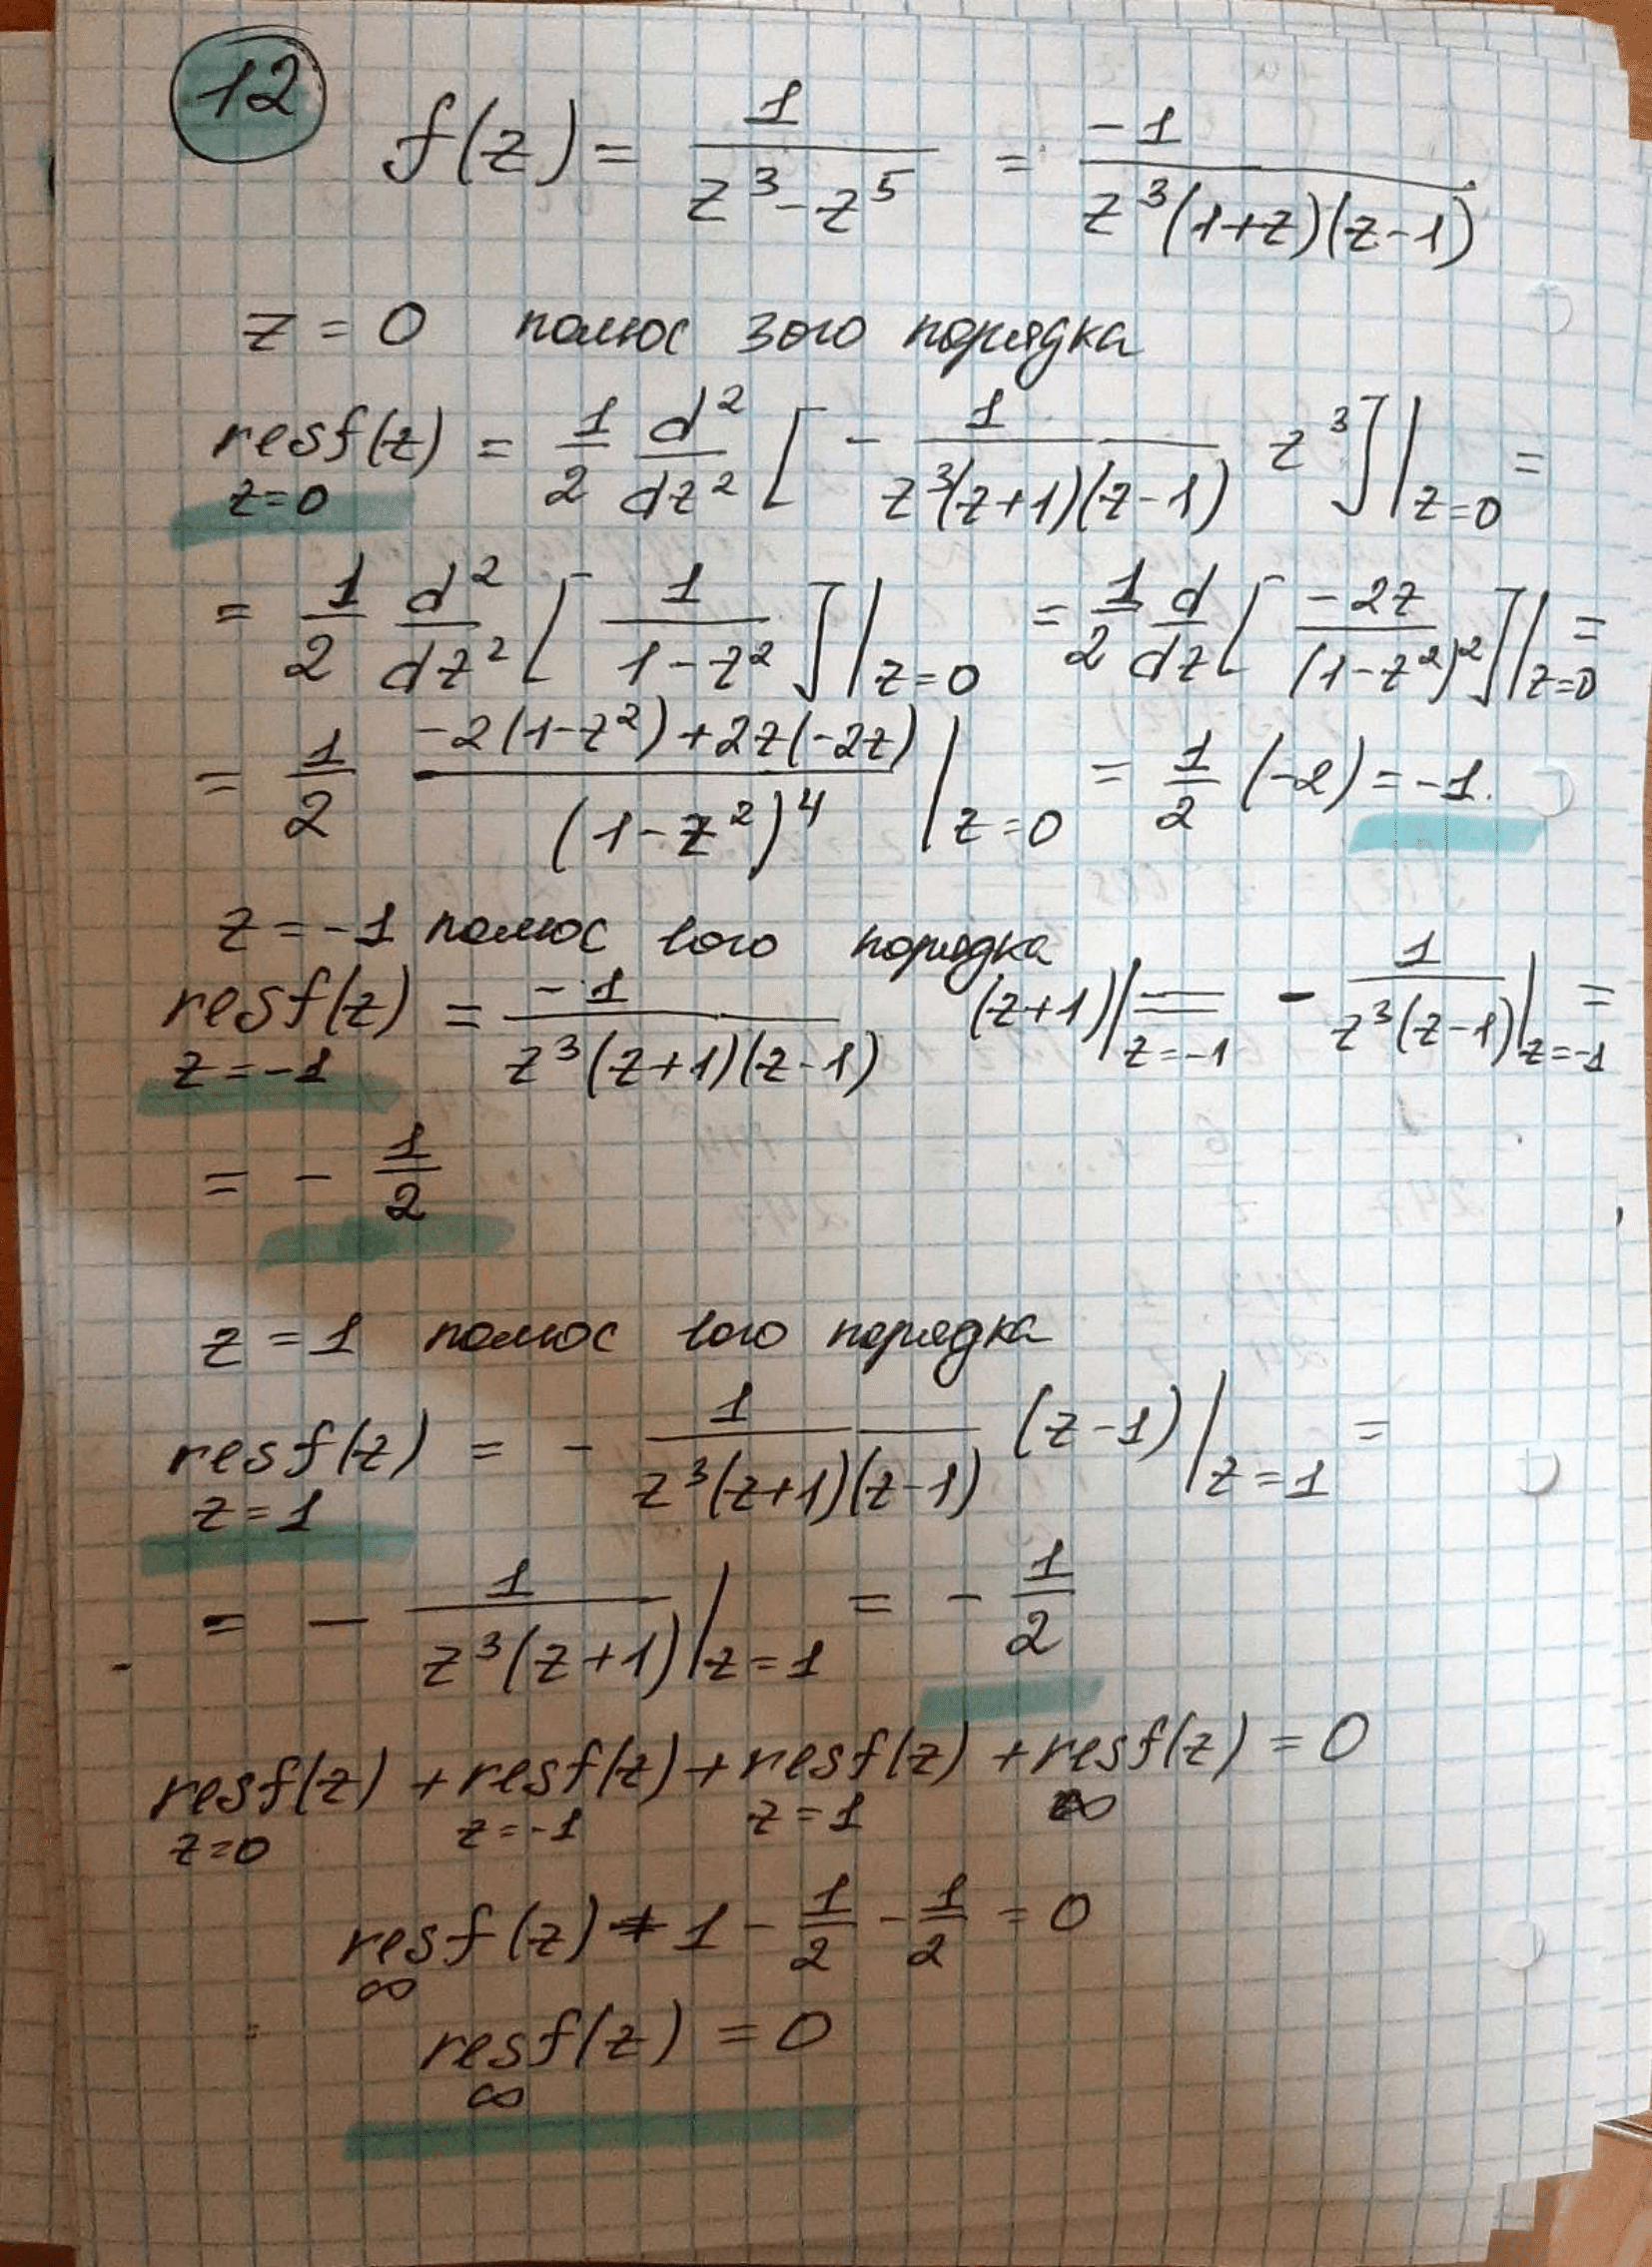 12
f(z) = 1/(z³ - z⁵) = -1/(z³(1+z)(z-1))
z = 0 полюс 3ого порядка
res f(z) z=0 = 1/2 d²/dz² [ - 1/(z³(z+1)(z-1)) z³ ]|z=0 =
= 1/2 d²/dz² [ 1/(1-z²) ]|z=0 = 1/2 d/dz [ -2z/(1-z²)² ]|z=0 =
= 1/2 (-2(1-z²)+2z(-2z))/(1-z²)⁴ |z=0 = 1/2 (-2) = -1.
z = -1 полюс 1ого порядка
res f(z) z=-1 = -1/(z³(z+1)(z-1)) (z+1)|z=-1 = - 1/(z³(z-1))|z=-1 =
= - 1/2
z = 1 полюс 1ого порядка
res f(z) z=1 = - 1/(z³(z+1)(z-1)) (z-1)|z=1 =
= - 1/(z³(z+1))|z=1 = - 1/2
res f(z) z=0 + res f(z) z=-1 + res f(z) z=1 + res f(z) ∞ = 0
res f(z) ∞ + 1 - 1/2 - 1/2 = 0
res f(z) ∞ = 0